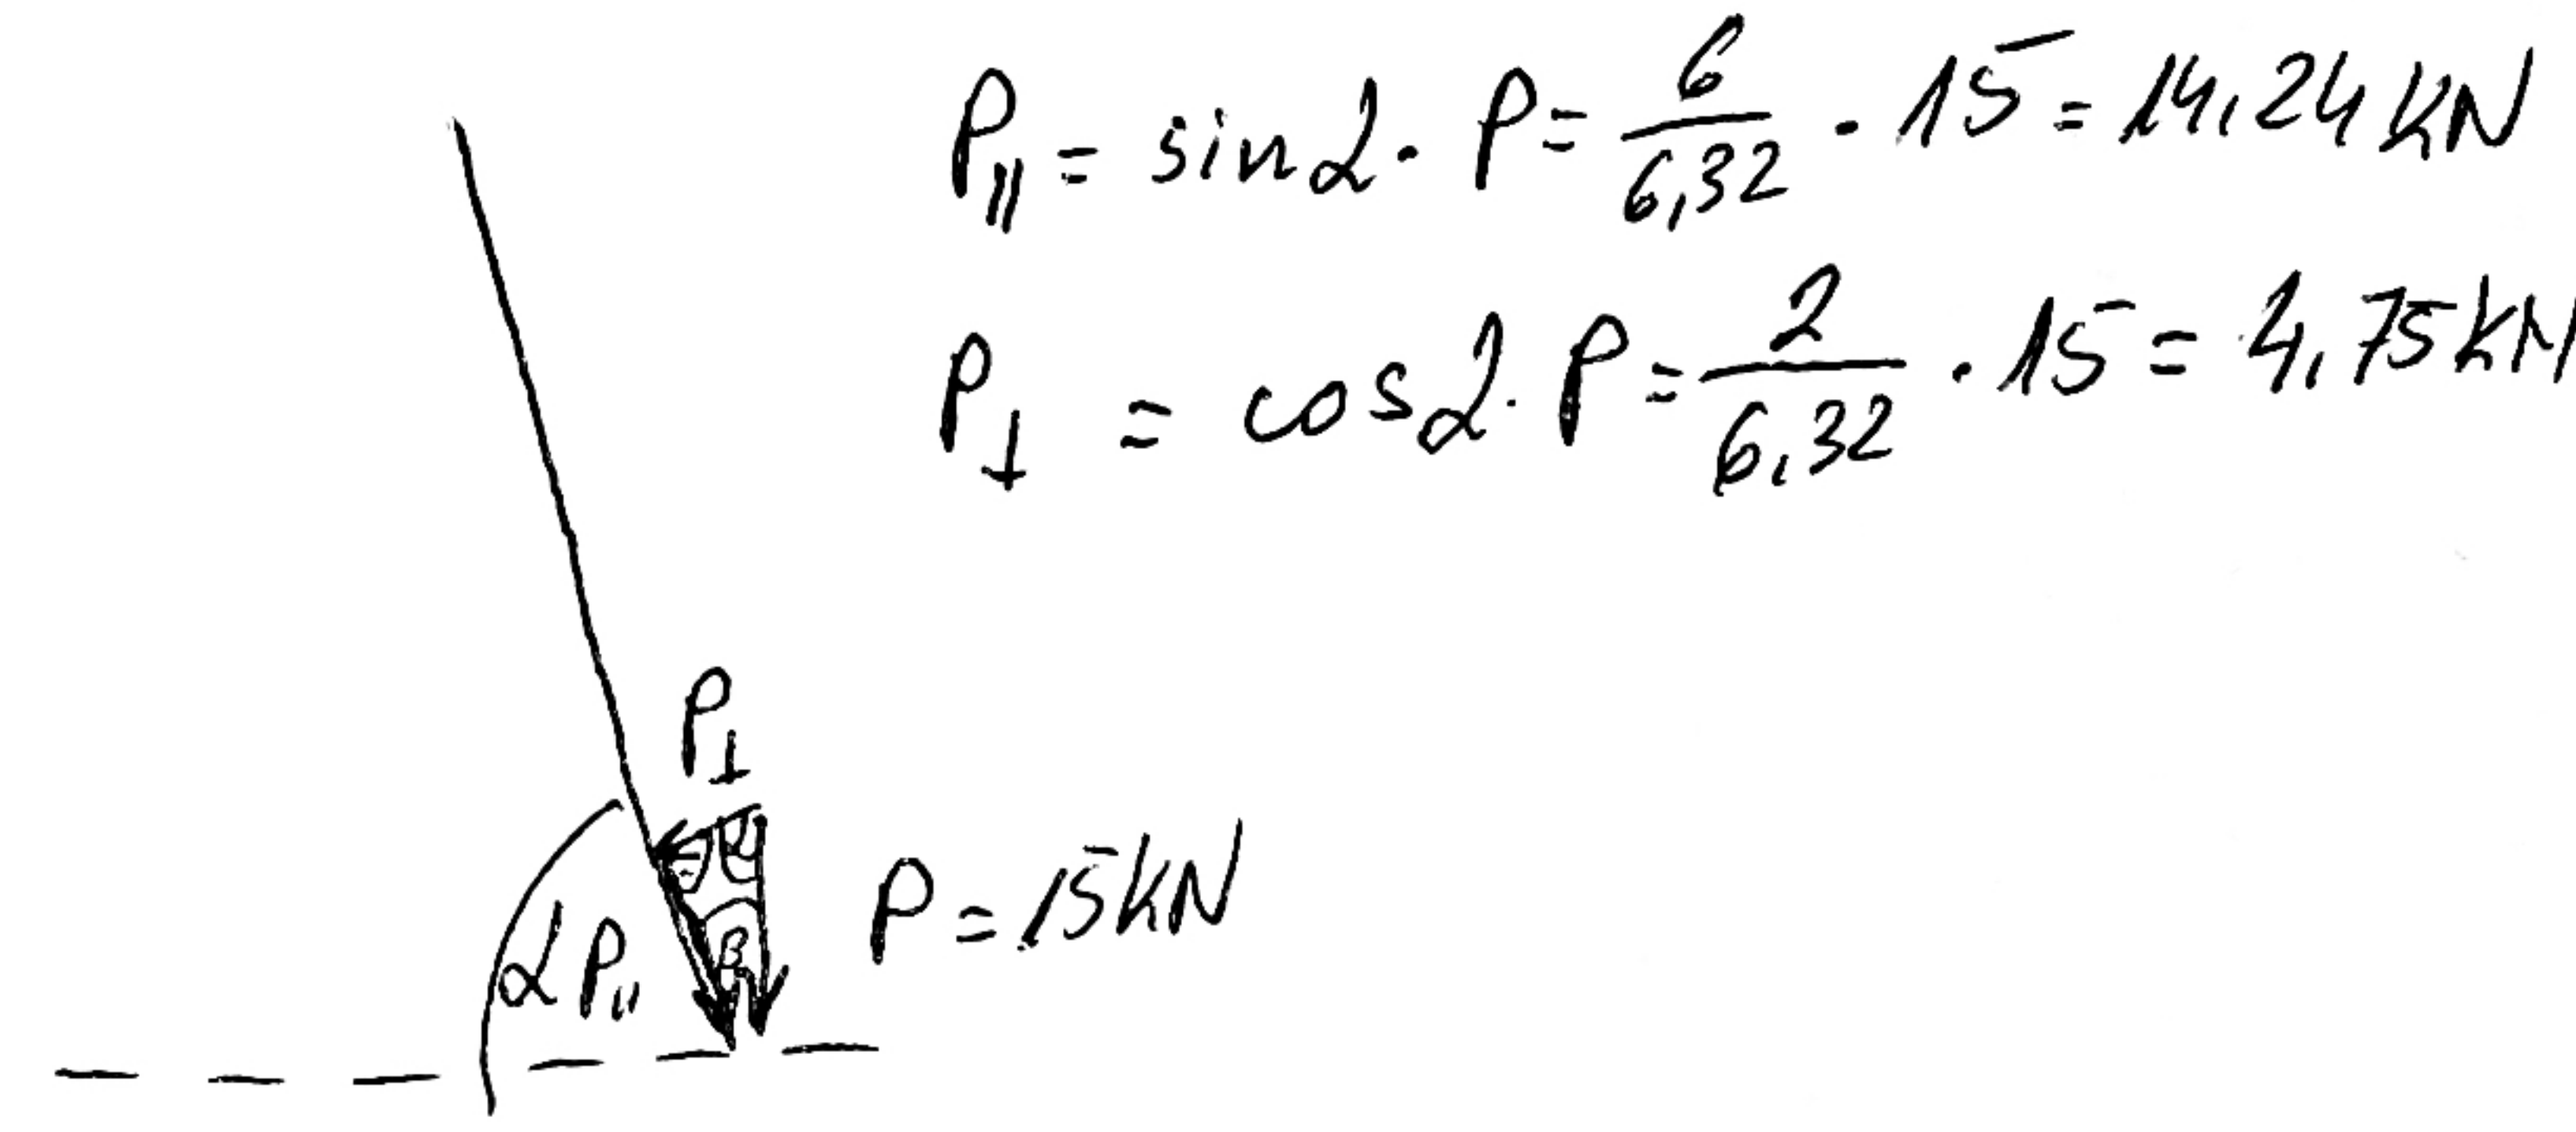 P∥ = sin α · P = 6/6,32 · 15 = 14,24 KN
P⊥ = cos α · P = 2/6,32 · 15 = 4,75 KN
P⊥
P = 15 KN
β
α P∥